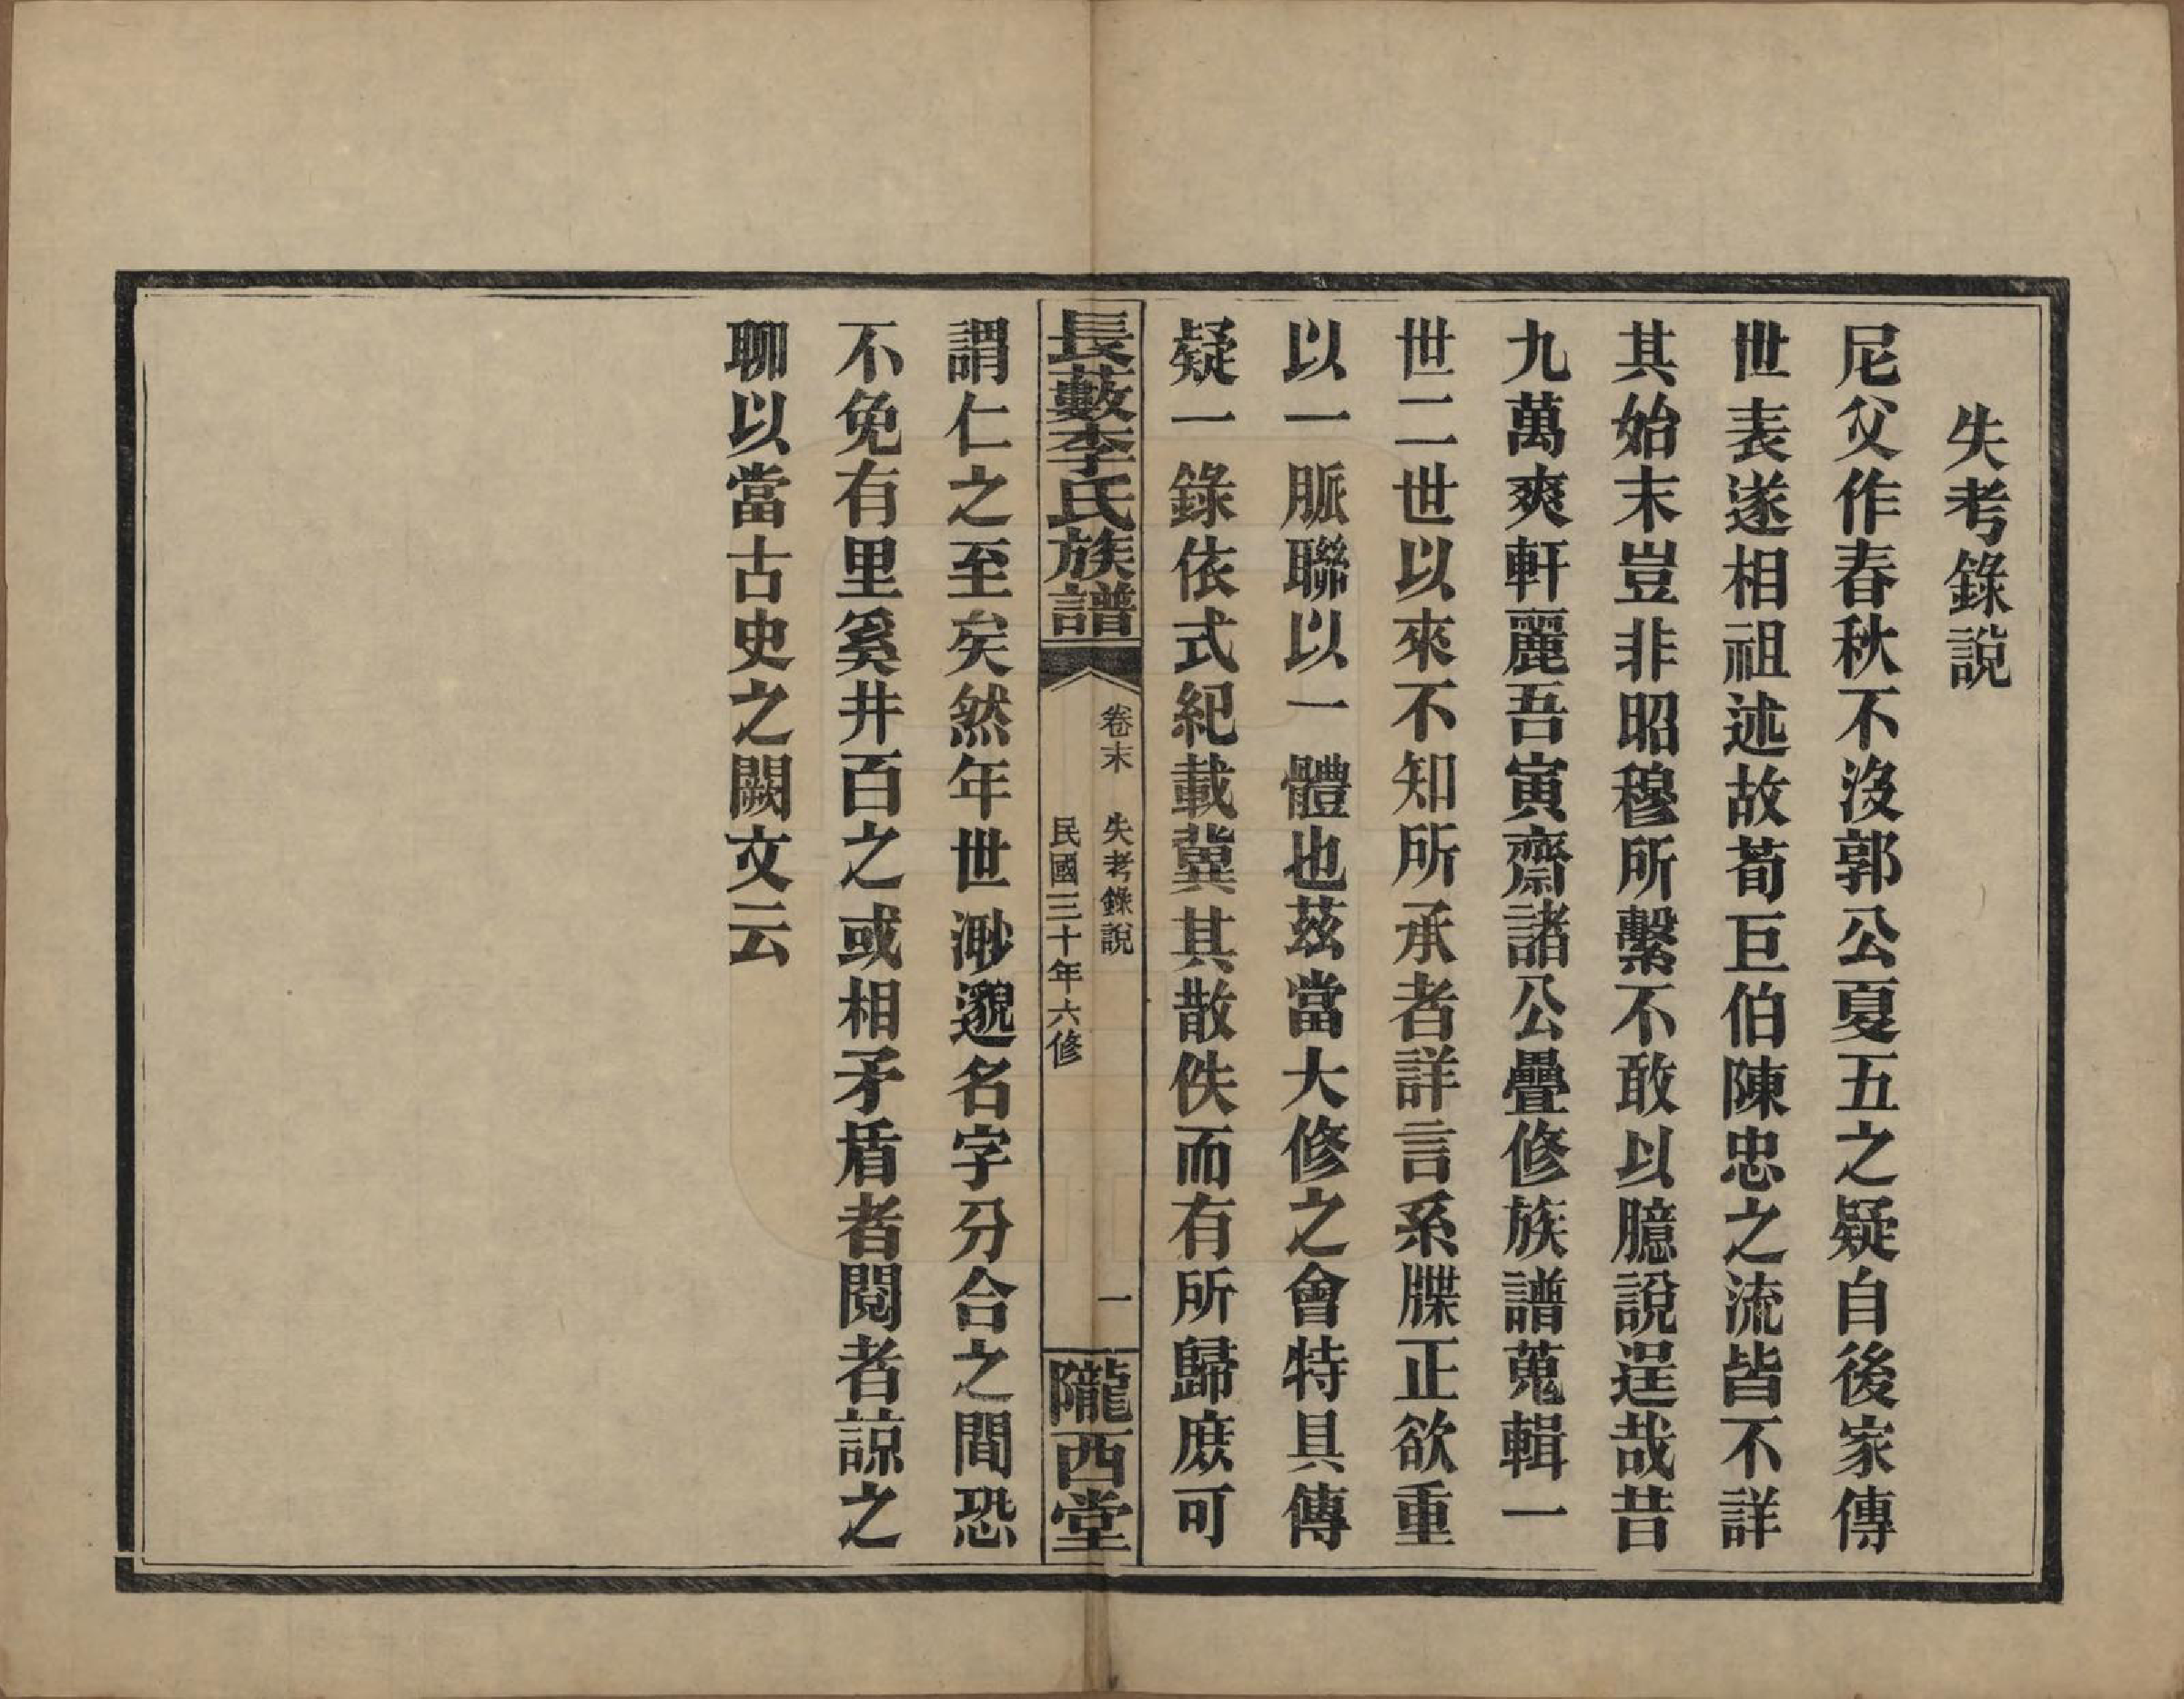 失考錄說
尼父作春秋不沒郭公夏五之疑自後家傳
世表遂相祖述故荀巨伯陳忠之流皆不詳
其始末豈非昭穆所繫不敢以臆說逞哉昔
九萬爽軒麗吾寅齋諸公疊修族譜蒐輯一
世二世以來不知所承者詳言系牒正欲重
以一脈聯以一體也茲當大修之會特具傳
疑一錄依式紀載冀其散佚而有所歸庶可
長藪李氏族譜
卷末 失考錄說 一
民國三十年六修
隴西堂
謂仁之至矣然年世渺邈名字分合之間恐
不免有里奚井百之或相矛盾者閱者諒之
聊以當古史之闕文云